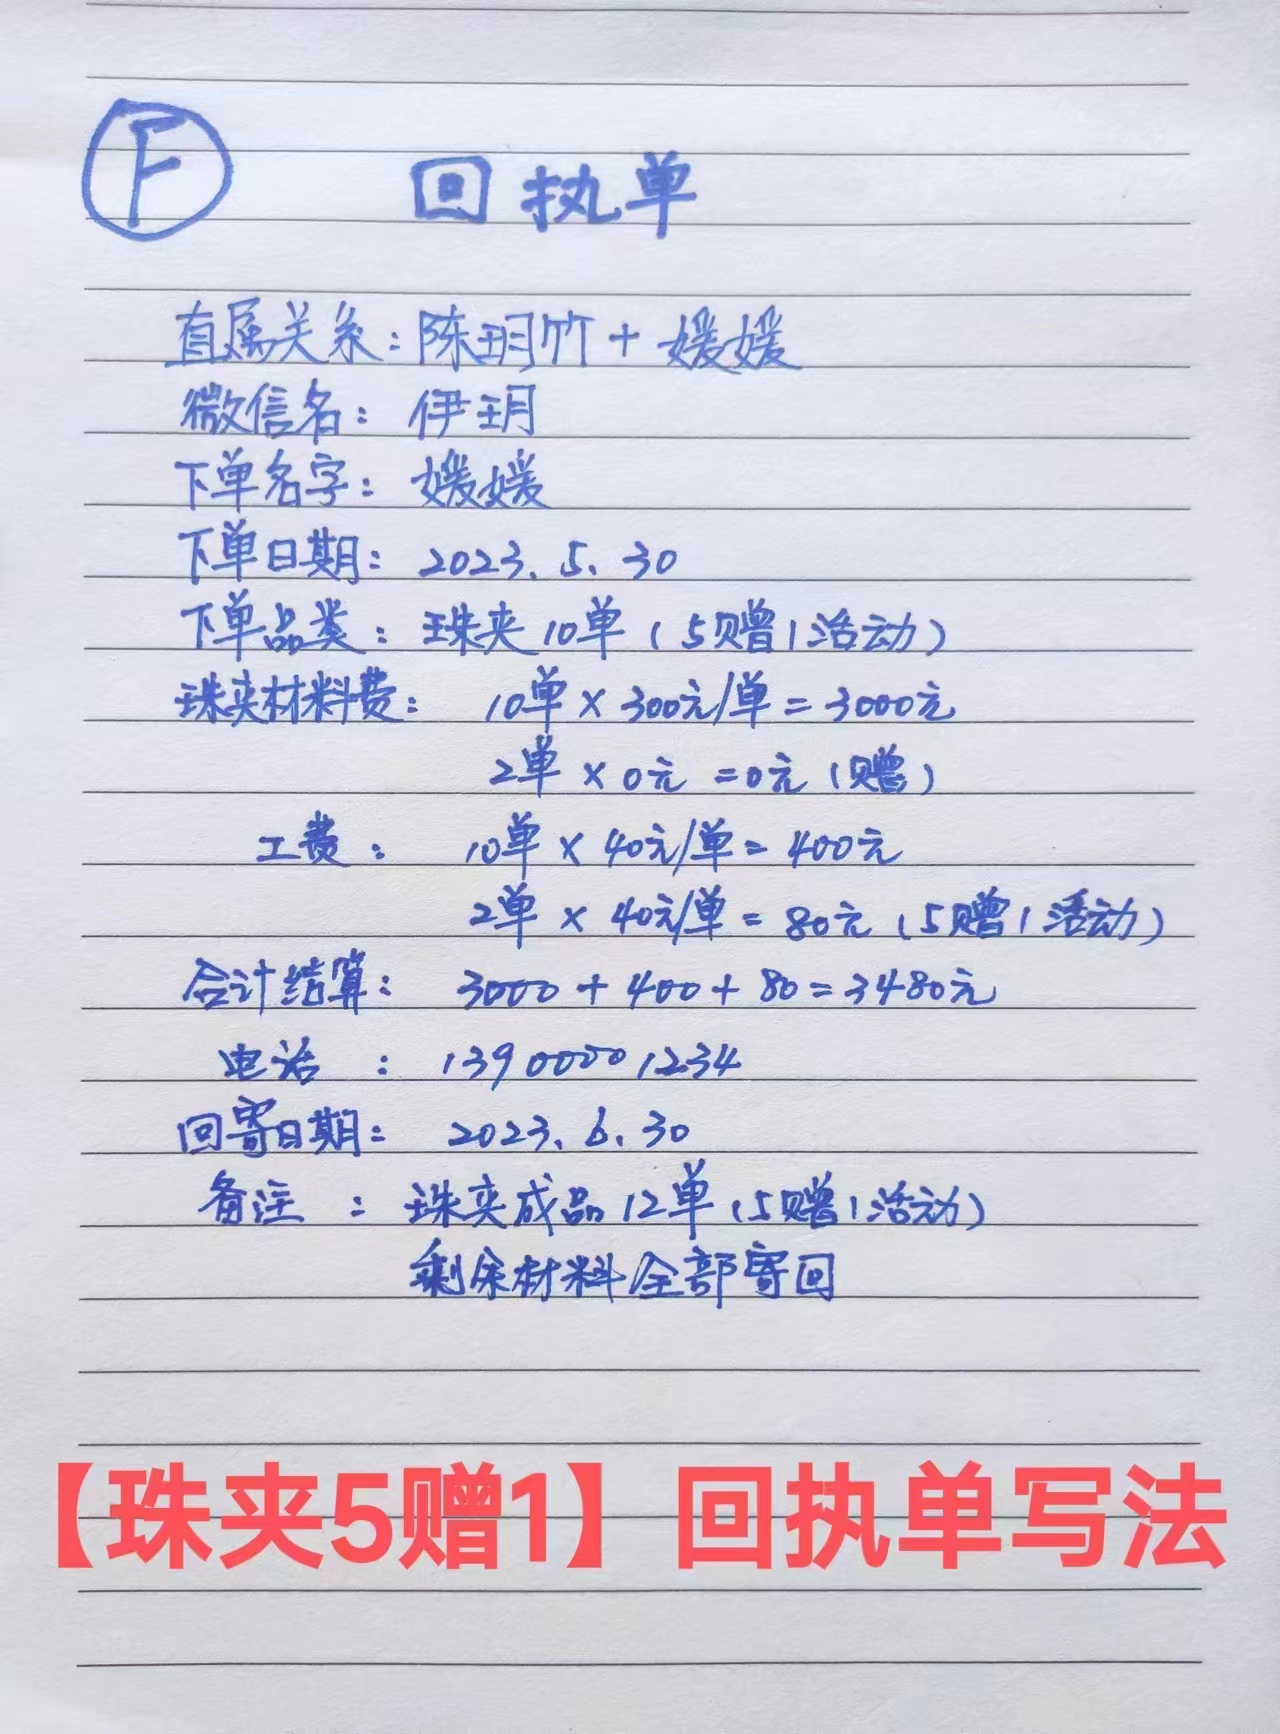 F
回执单
直属关系：陈玥竹＋媛媛
微信名：伊玥
下单名字：媛媛
下单日期：2023.5.30
下单品类：珠夹10单（5赠1活动）
珠夹材料费：10单×300元/单=3000元
2单×0元=0元（赠）
工费：10单×40元/单=400元
2单×40元/单=80元（5赠1活动）
合计结算：3000+400+80=3480元
电话：13900001234
回寄日期：2023.6.30
备注：珠夹成品12单（5赠1活动）
剩余材料全部寄回
【珠夹5赠1】回执单写法